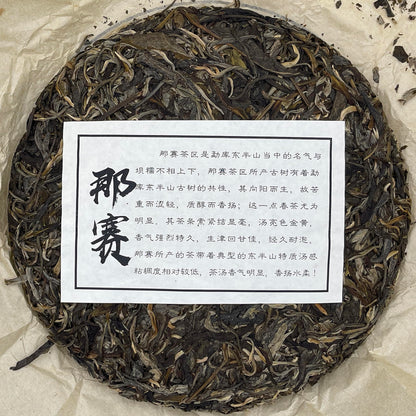 那赛
那赛茶区是勐库东半山当中的名气与
坝糯不相上下，那赛茶区所产古树有着勐
库东半山古树的共性，其向阳而生，故茶
重而涩轻，质醇而香扬；这一点春茶尤为
明显，其茶条索紧结显毫，汤亮色金黄，
香气强烈持久，生津回甘佳，经久耐泡，
那赛所产的茶带着典型的东半山特质汤感
粘稠度相对较低，茶汤香气明显，香扬水柔！